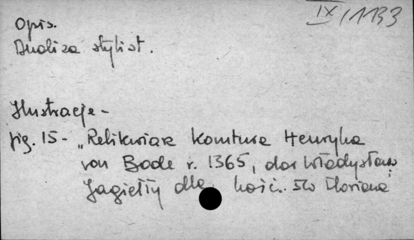 IX/1133
Opis.
Analiza stylist.
Ilustracje -
fig. 15 - „Relikwiarz komtura Henryka
von Bode r. 1365, dar Władysława
Jagiełły dla kośc. św Floriana